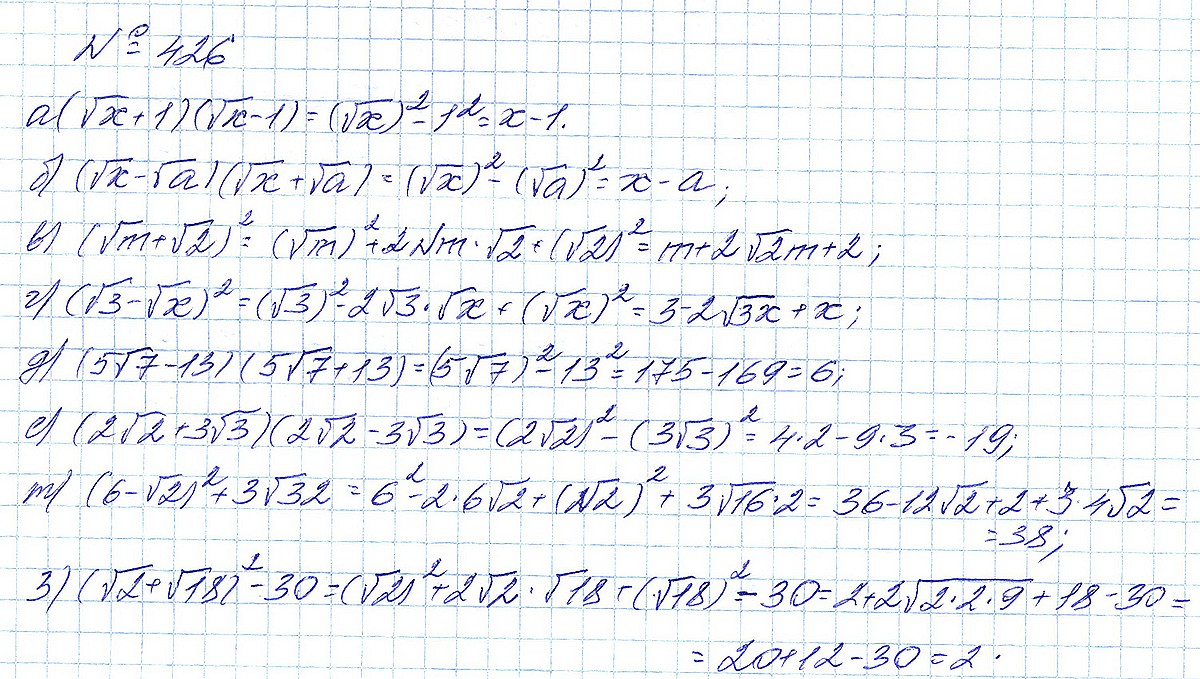 № 426
а) (√x+1)(√x-1)=(√x)²-1²=x-1.
б) (√x-√a)(√x+√a)=(√x)²-(√a)²=x-a;
в) (√m+√2)²=(√m)²+2√m·√2+(√2)²=m+2√2m+2;
г) (√3-√x)²=(√3)²-2√3·√x+(√x)²=3-2√3x+x;
д) (5√7-13)(5√7+13)=(5√7)²-13²=175-169=6;
е) (2√2+3√3)(2√2-3√3)=(2√2)²-(3√3)²=4·2-9·3=-19;
ж) (6-√2)²+3√32=6²-2·6√2+(√2)²+3√16·2=36-12√2+2+3·4√2=
=38;
з) (√2+√18)²-30=(√2)²+2√2·√18+(√18)²-30=2+2√2·2·9+18-30=
=20+12-30=2.